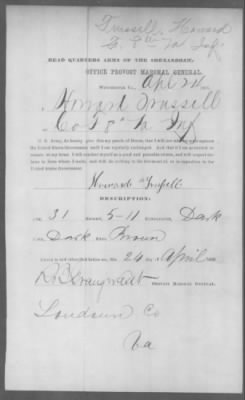 Trussell, Howard
F. 8th Va Inf.
HEAD QUARTERS ARMY OF THE SHENANDOAH,
OFFICE PROVOST MARSHAL GENERAL.
Winchester Va., Apl 24 1865.
I, Howard Trussell
Co F 8" Va Inf
C. S. Army, do hereby give this my parole of Honor, that I will not take up arms against
the United States Government until I am regularly exchanged. And that if I am permitted to
remain at my home, I will conduct myself as a good and peaceable citizen, and will respect the
laws in force where I reside, and will do nothing to the detriment of, or in opposition to the
United States Government.
Howard Trussell
DESCRIPTION:
AGE 31 HEIGHT, 5-11 COMPLEXION, Dark
EYES Dark HAIR Brown
Sworn to and subscribed before me, this 24 day of April 1865.
Provost Marshal General.
Loudoun Co
Va